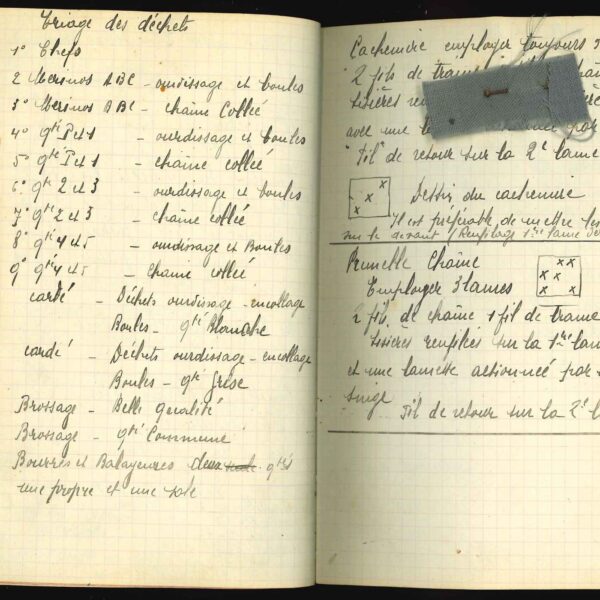 Triage des déchets
1° Chefs
2 Merinos ABC - ourdissage et boules
3° Merinos ABC - chaîne collée
4° qté P et 1 - ourdissage et boules
5° qté P et 1 - chaîne collée
6° qté 2 et 3 - ourdissage et boules
7° qté 2 et 3 - chaîne collée
8° qté 4 et 5 - ourdissage et Boules
9° qté 4 et 5 - Chaîne collée
cardé - Déchets ourdissage - encollage
Boules - qté Blanche
cardé - Déchets ourdissage - encollage
Boules - qté Grise
Brossage - Belle qualité
Brossage - qté Commune
Bourres et Balayeures deux qtés
une propre et une sale
Cachemire employer toujours
2 fils de
lisières
avec une par
"Fil" de retour sur la 2e lame
x
x
x
Dessin du cachemire
Il est préférable de mettre les
sur le devant (Remplage 1ère lame
Prunelle Chaîne
x x
x x
x x
Employer 3 lames
2 fils de chaîne 1 fil de trame
Lisières remplies sur la 1ère
et une lamette actionnée par
singe Fil de retour sur la 2e